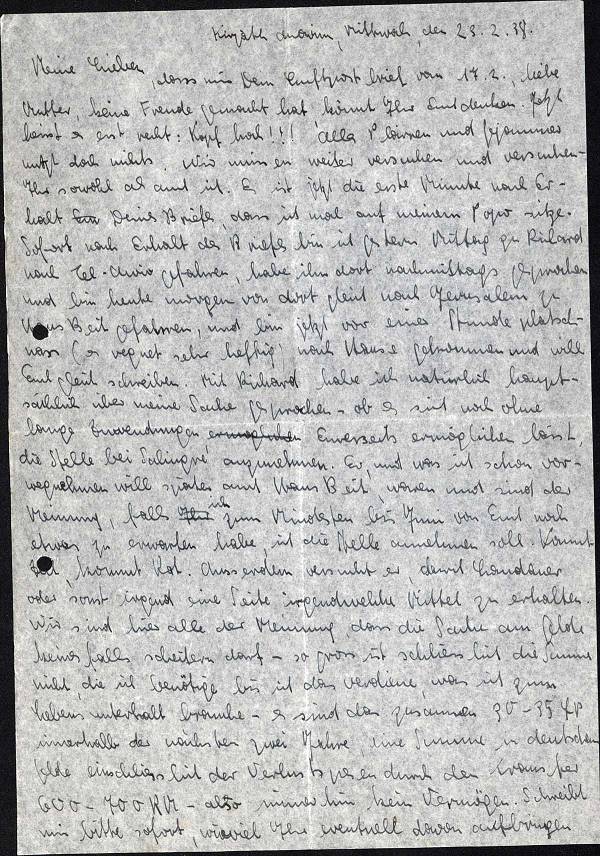 Mittwoch, den 23.2.38.
Meine Lieben, dass mir Dein Luftpostbrief vom 17.2., liebe
Mutter, keine Freude gemacht hat, könnt Ihr Euch denken. Jetzt
heisst es erst recht: Kopf hoch!!! Alles Plärren und Gejammer
nutzt doch nichts. Wir müssen weiter versuchen und versuchen –
Ihr sowohl als auch ich. Es ist jetzt die erste Minute nach Er-
halt Deines Briefes, dass ich mal auf meinem Popo sitze.
Sofort nach Erhalt des Briefes bin ich gestern Mittag zu Richard
nach Tel-Aviv gefahren, habe ihn dort nachmittags gesprochen
und bin heute morgen von dort gleich nach Jerusalem zu
Hans Beit gefahren, und bin jetzt vor einer Stunde platsch-
nass (es regnet sehr heftig) nach Hause gekommen und will
Euch gleich schreiben. Mit Richard habe ich natürlich haupt-
sächlich über meine Sache gesprochen – ob es sich noch ohne
lange Zuwendungen Eurerseits ermöglichen lässt,
die Stelle bei Salingré anzunehmen. Er, und was ich schon vor-
wegnehmen will später auch Hans Beit, waren und sind der
Meinung, falls ich zum Mindesten bis Juni von Euch noch
etwas zu erwarten habe, ich die Stelle annehmen soll. Kommt
kommt Rat. Ausserdem versucht er, durch Landauer
oder sonst irgend eine Seite irgendwelche Mittel zu erhalten.
Wir sind hier alle der Meinung, dass die Sache am Gelde
keinesfalls scheitern darf – so gross ist schliesslich die Summe
nicht, die ich benötige bis ich das verdiene, was ich zum
Lebensunterhalt brauche – es sind das zusammen 30–35 LP
innerhalb der nächsten zwei Jahre, eine Summe in deutschem
Gelde einschliesslich der Verlustspesen durch den Transfer
600–700 RM – also immerhin kein Vermögen. Schreibt
mir bitte sofort, wieviel Ihr eventuell davon aufbringen